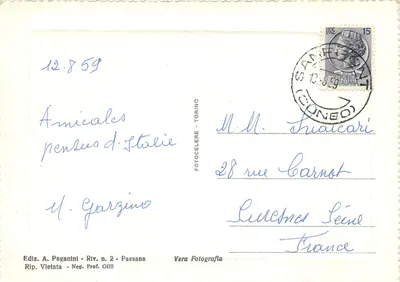 12.8.59
Amicales
pensées d'Italie
M. Gargino
LIRE 15
SANFRONT
(CUNEO)
FOTOCELERE - TORINO
M. M.
28 rue Carnot
Suresnes Seine
France
Ediz. A. Paganini - Riv. n. 2 - Paesana
Rip. Vietata - Neg. Prof. Gilli
Vera Fotografia